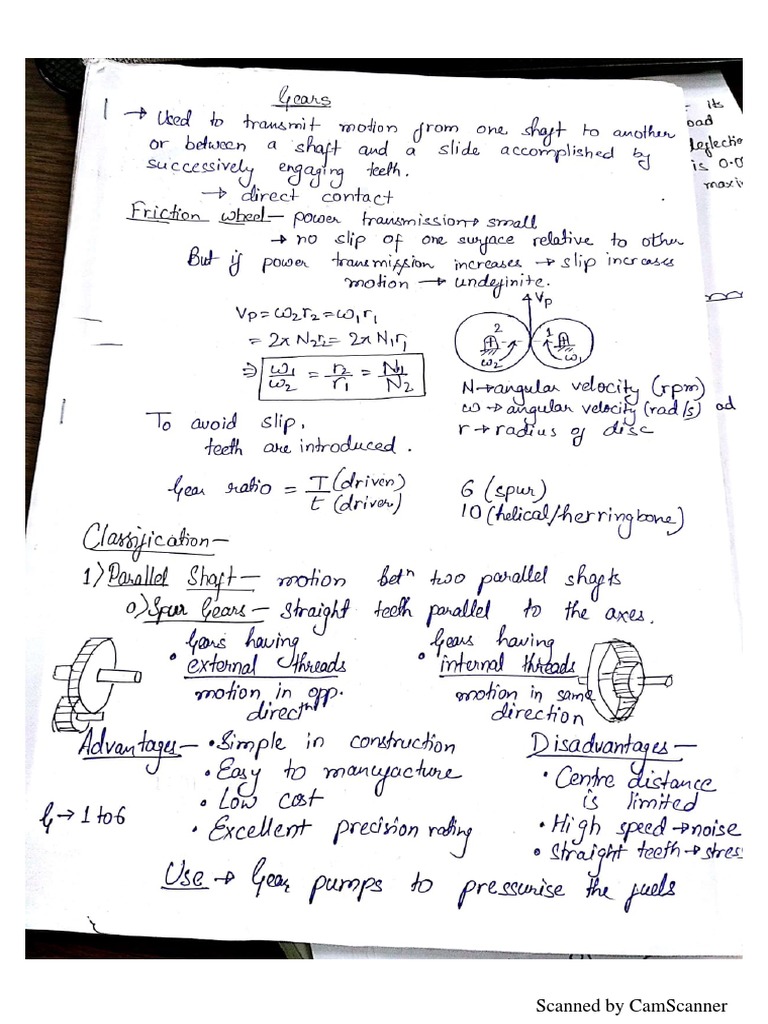 Gears
→ Used to transmit motion from one shaft to another
or between a shaft and a slide accomplished by
successively engaging teeth.
→ direct contact
Friction wheel – power transmission → small
→ no slip of one surface relative to other
But if power transmission increases → slip increases
motion → undefinite.
Vp = ω2r2 = ω1r1
= 2π N2r2 = 2π N1r1
⇒ ω1/ω2 = r2/r1 = N1/N2
Vp
2
1
ω2
ω1
N → angular velocity (rpm)
ω → angular velocity (rad/s)
r → radius of disc
To avoid slip,
teeth are introduced.
Gear ratio = T (driven) / t (driver)
6 (spur)
10 (helical/herringbone)
Classification –
1) Parallel Shaft – motion betⁿ two parallel shafts
a) Spur Gears – straight teeth parallel to the axes.
Gears having
• external threads
motion in opp.
directⁿ
Gears having
• internal threads
motion in same
direction
Advantages – • Simple in construction
• Easy to manufacture
• Low cost
• Excellent precision rating
G → 1 to 6
Disadvantages –
• Centre distance
is limited
• High speed → noise
• Straight teeth → stress
Use → Gear pumps to pressurise the fuels
its
oad
deflectio
is 0.0
maxi
ad
Scanned by CamScanner